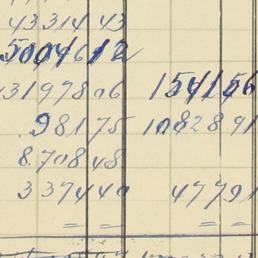 43314 43
5004612
31978 06 154156
98175 10828 91
8.708 48
337440 47791
= = = =